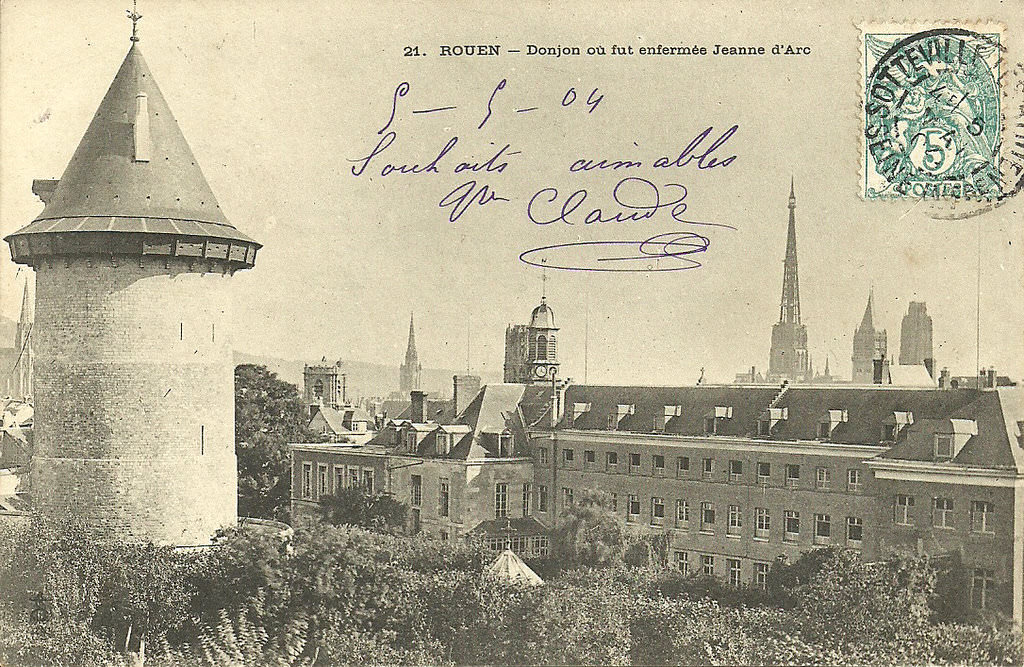 21. ROUEN — Donjon où fut enfermée Jeanne d'Arc
5 — 5 — 04
Souhaits aimables
Claude
SOTTEVILLE LES ROUEN
5
POSTES